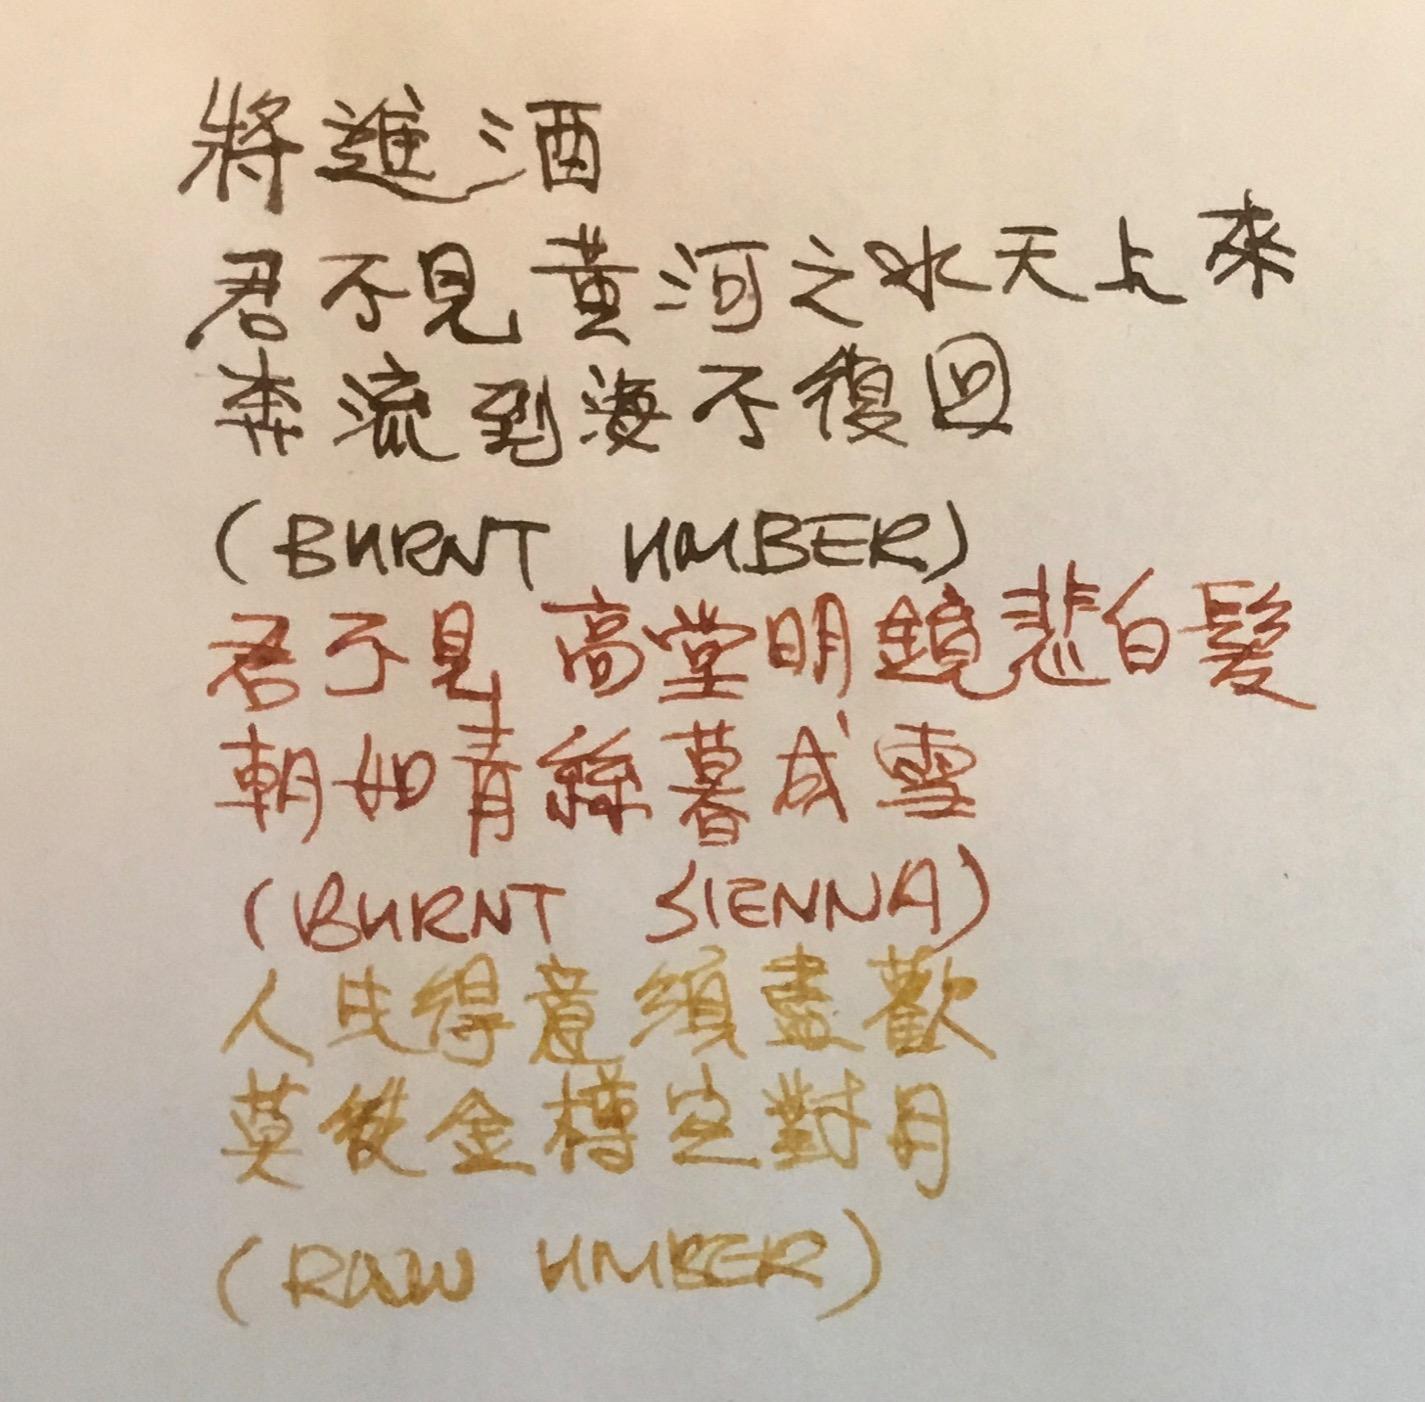 將進酒
君不見黃河之水天上來
奔流到海不復回
(BURNT UMBER)
君不見高堂明鏡悲白髮
朝如青絲暮成雪
(BURNT SIENNA)
人生得意須盡歡
莫使金樽空對月
(RAW UMBER)